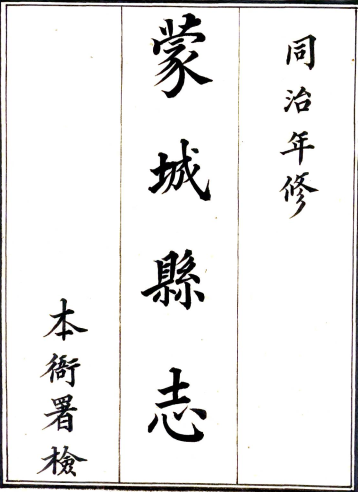 同治年修
蒙城縣志
本衙署檢